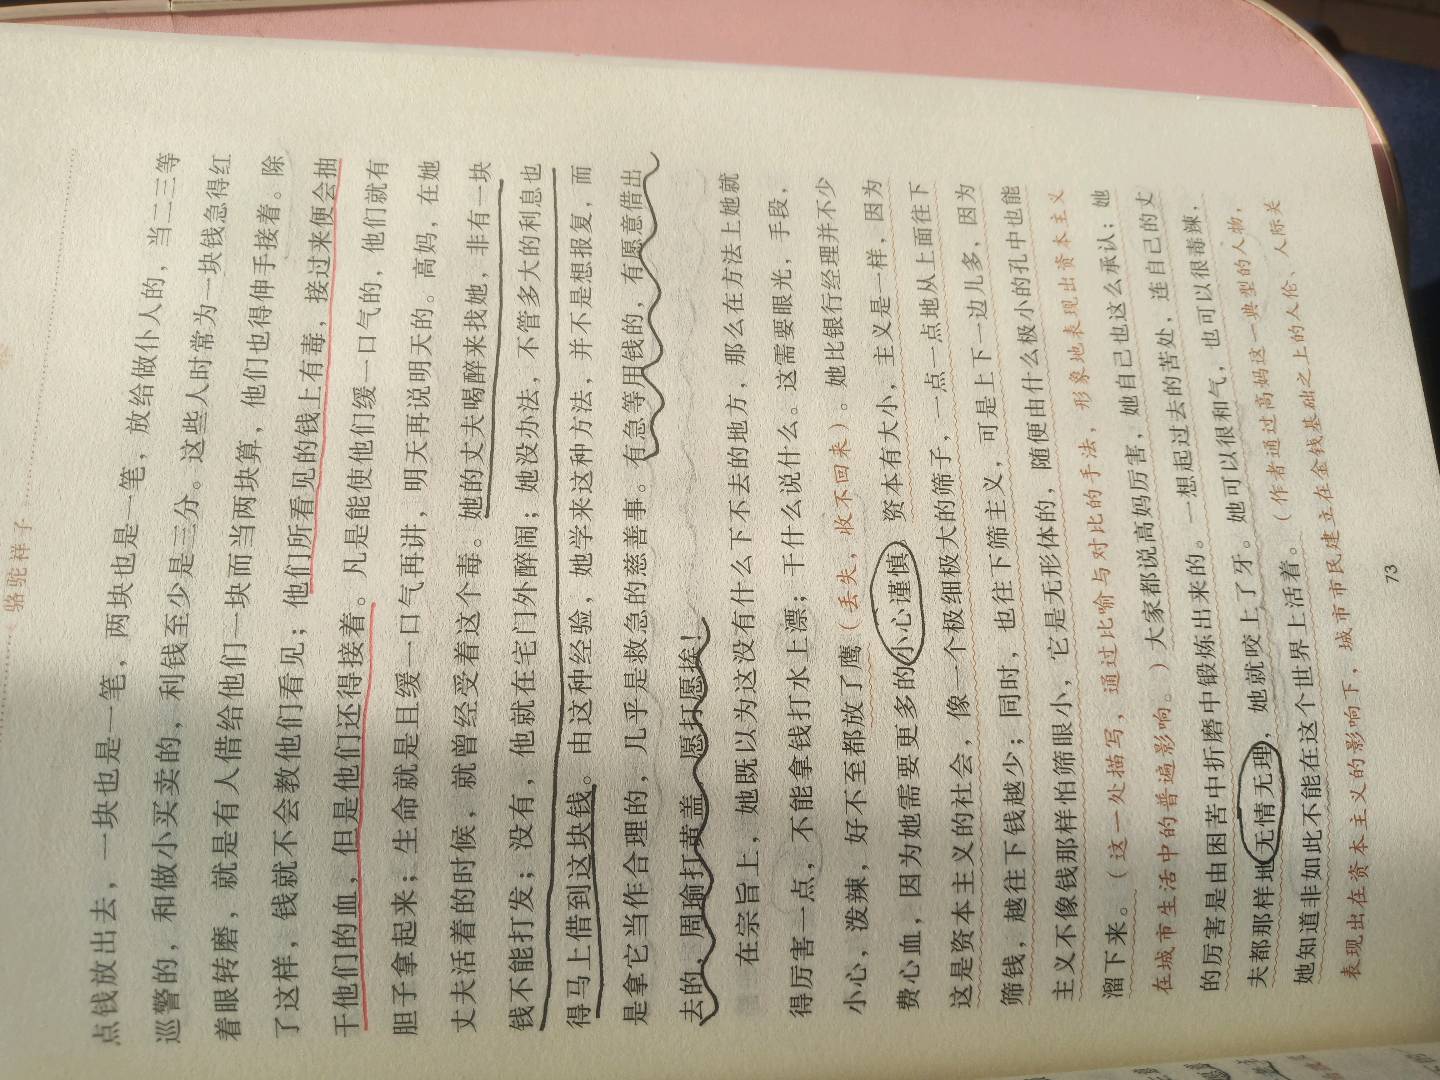 骆驼祥子
点钱放出去，一块也是一笔，两块也是一笔，放给做仆人的，当二三等
巡警的，和做小买卖的，利钱至少是三分。这些人时常为一块钱急得红
着眼转磨，就是有人借给他们一块而当两块算，他们也得伸手接着。除
了这样，钱就不会教他们看见；他们所看见的钱上有毒，接过来便会抽
干他们的血，但是他们还得接着。凡是能使他们缓一口气的，他们就有
胆子拿起来；生命就是且缓一口气再讲，明天再说明天的。高妈，在她
丈夫活着的时候，就曾经受着这个毒。她的丈夫喝醉来找她，非有一块
钱不能打发；没有，他就在宅门外醉闹；她没办法，不管多大的利息也
得马上借到这块钱。由这种经验，她学来这种方法，并不是想报复，而
是拿它当作合理的，几乎是救急的慈善事。有急等用钱的，有愿意借出
去的，周瑜打黄盖，愿打愿挨！
在宗旨上，她既以为这没有什么下不去的地方，那么在方法上她就
得厉害一点，不能拿钱打水上漂；干什么说什么。这需要眼光，手段，
小心，泼辣，好不至都放了鹰（丢失，收不回来）。她比银行经理并不少
费心血，因为她需要更多的小心谨慎。资本有大小，主义是一样，因为
这是资本主义的社会，像一个极细极大的筛子，一点一点地从上面往下
筛钱，越往下钱越少；同时，也往下筛主义，可是上下一边儿多，因为
主义不像钱那样怕筛眼小，它是无形体的，随便由什么极小的孔中也能
溜下来。（这一处描写，通过比喻与对比的手法，形象地表现出资本主义
在城市生活中的普遍影响。）大家都说高妈厉害，她自己也这么承认；她
的厉害是由困苦中折磨中锻炼出来的。一想起过去的苦处，连自己的丈
夫都那样地无情无理，她就咬上了牙。她可以很和气，也可以很毒辣，
她知道非如此不能在这个世界上活着。（作者通过高妈这一典型的人物，
表现出在资本主义的影响下，城市市民建立在金钱基础之上的人伦、人际关
73